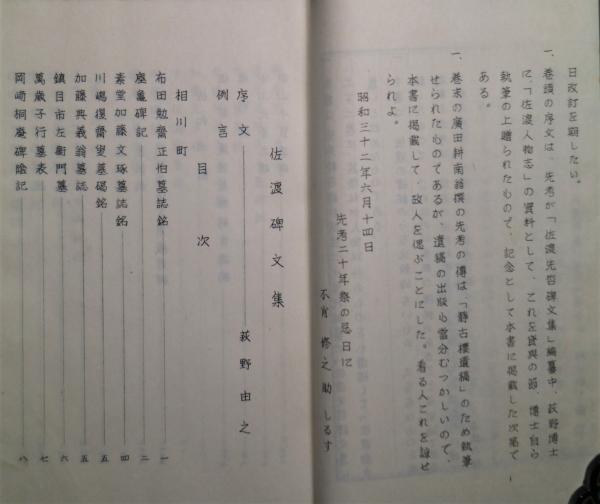 日改訂を願したい。
一、巻頭の序文は、先考が「佐渡先哲碑文集」編纂中、荻野博士
に、「佐渡人物志」の資料として、これを貸与の節、博士自ら
執筆の上贈られたもので、記念として本書に掲載した次第で
ある。
一、巻末の廣田耕南翁撰の先考の傳は、「静古樓遺稿」のため執筆
せられたものであるが、遺稿の出版も當分むつかしいので、
本書に掲載して、故人を偲ぶことにした。看る人これを諒せ
られよ。
昭和三十二年六月十四日
先考二十年祭の忌日に
不肖 修之助 しるす
1
佐渡碑文集
序文 荻野由之
例言
目次
相川町
布田勉齋正伯墓誌銘 一
靈龜碑記 二
素堂加藤文琢墓誌銘 四
川嶋復齋叟墓碣銘 五
加藤典義翁墓誌 五
鎮目市左衛門墓 六
萬歳子行墓表 八
岡崎桐廢碑陰記 八